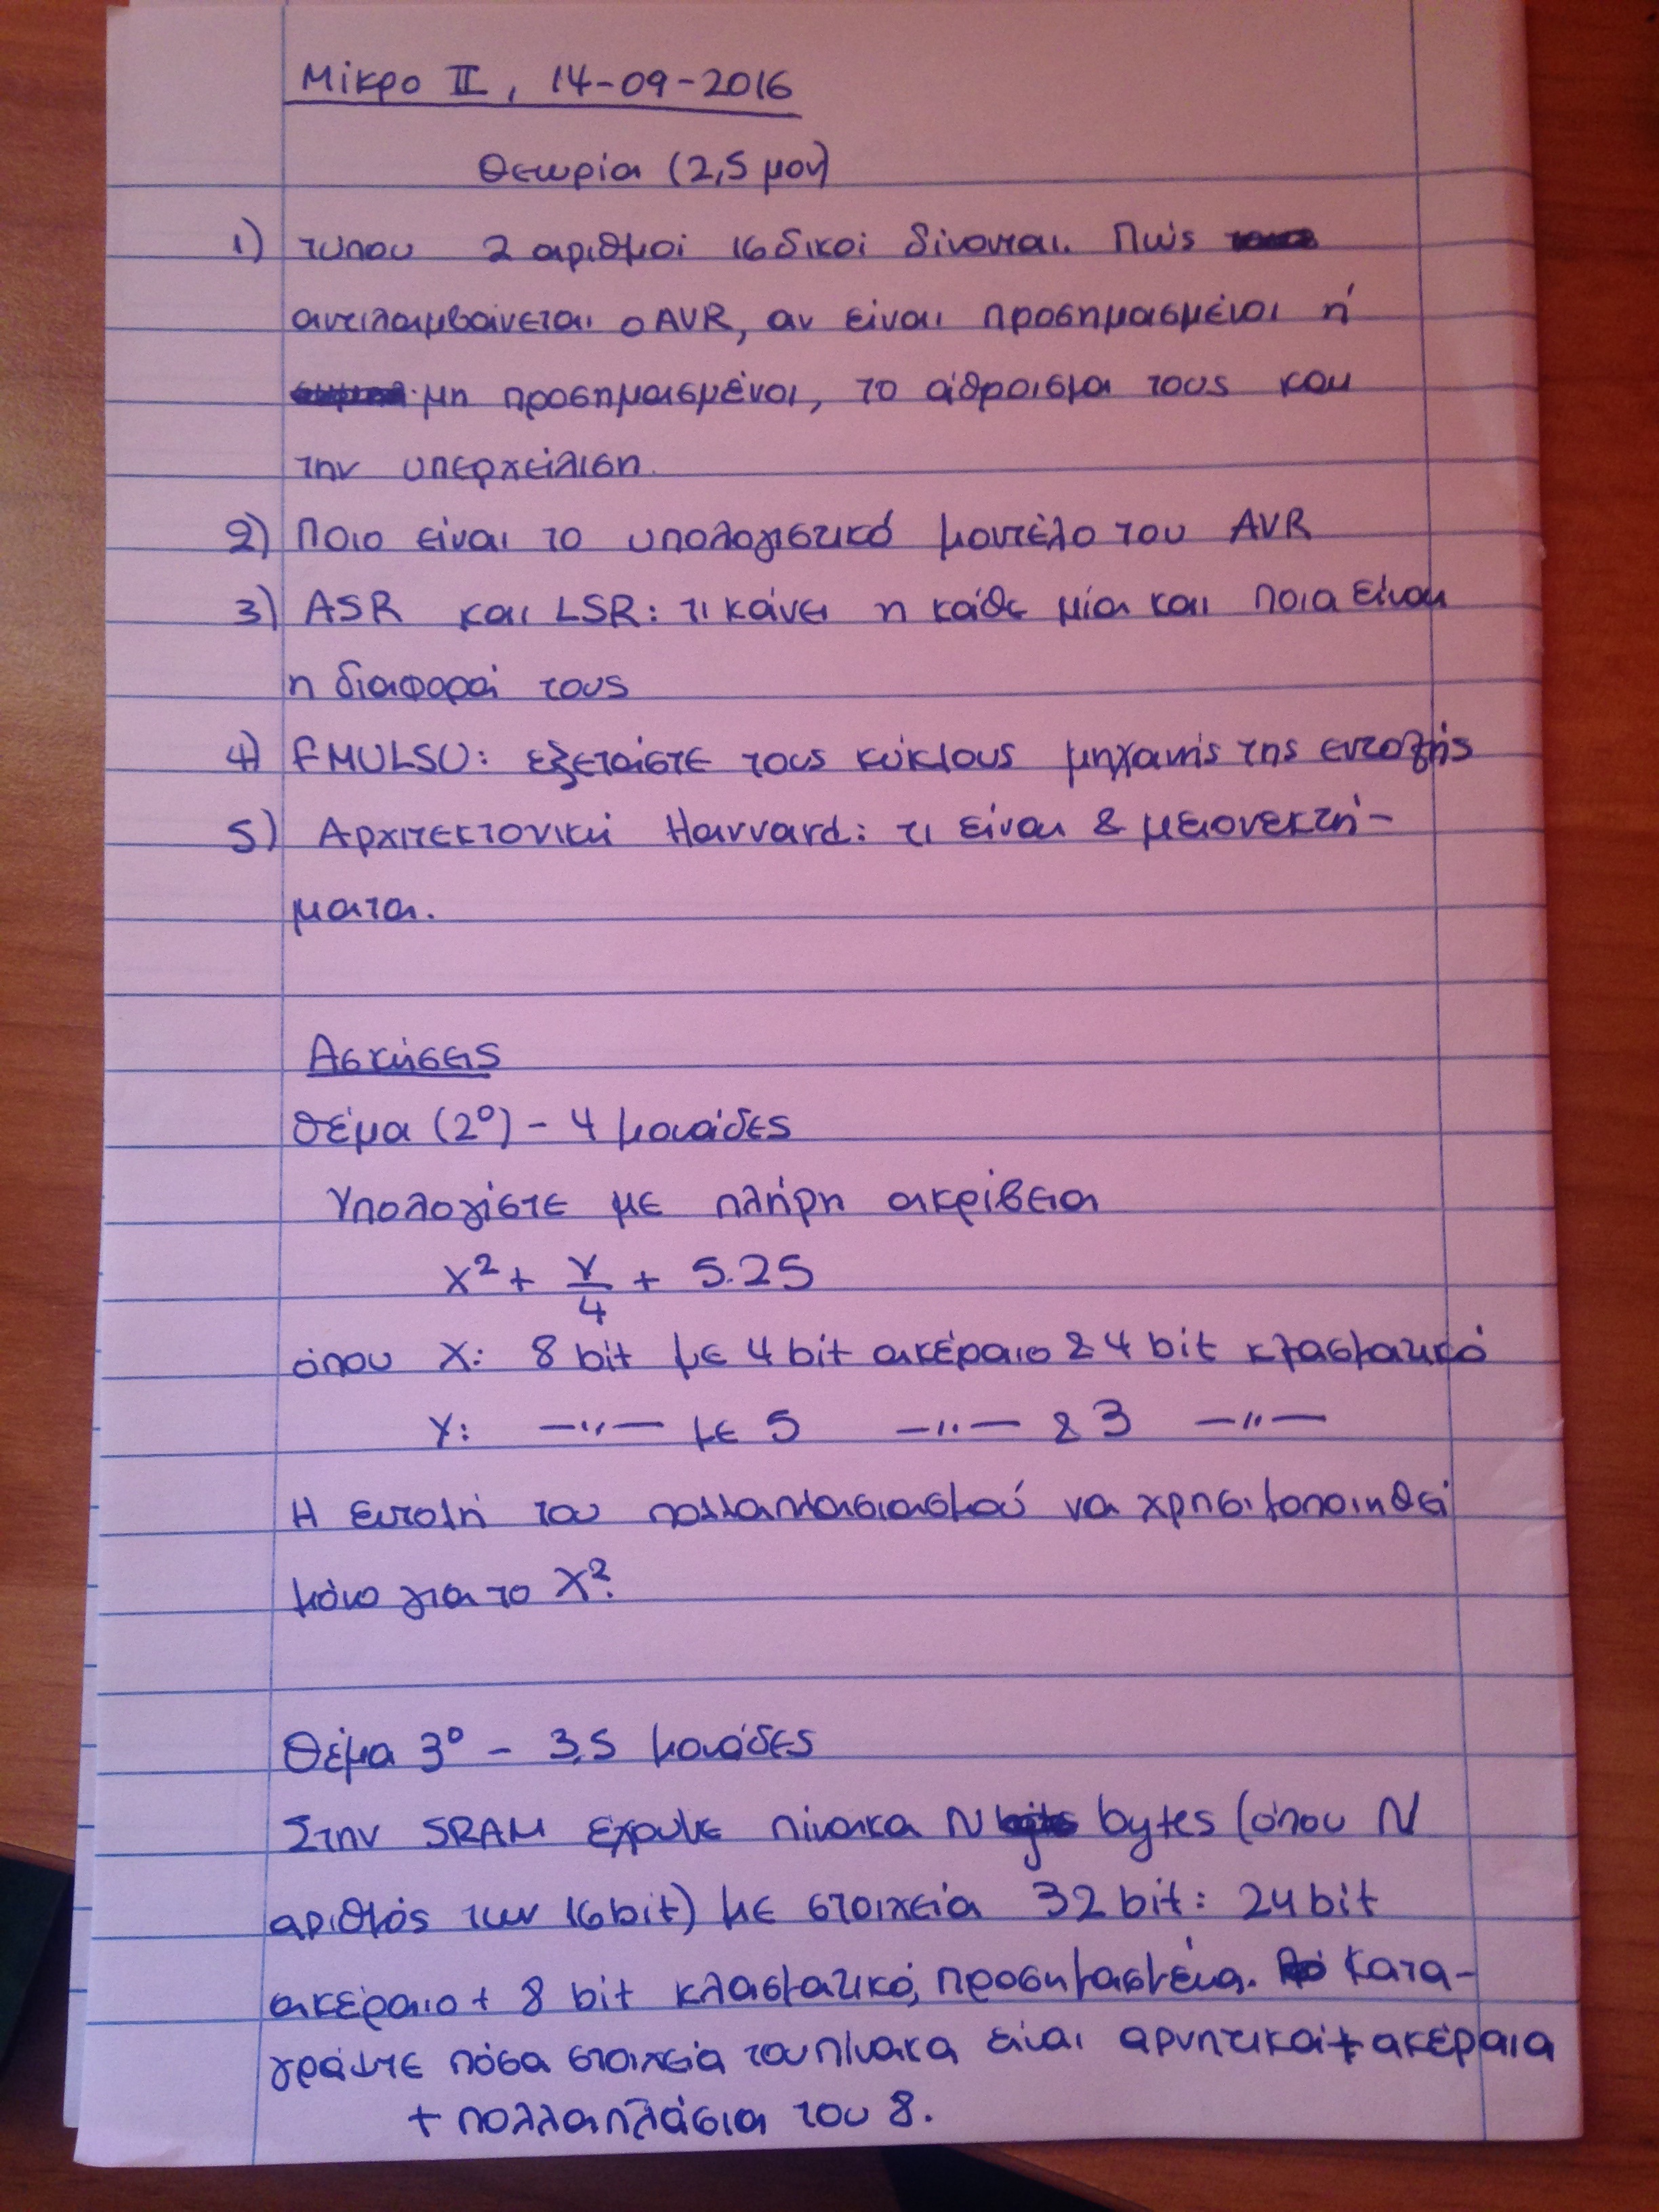 Μίκρο ΙΙ, 14-09-2016
Θεωρία (2,5 μον)
1) τύπου 2 αριθμοί 16δικοί δίνονται. Πώς
αντιλαμβάνεται ο AVR, αν είναι προσημασμένοι ή
μη προσημασμένοι, το άθροισμα τους και
την υπερχείλιση.
2) Ποιο είναι το υπολογιστικό μοντέλο του AVR
3) ASR και LSR: τι κάνει η κάθε μία και ποια είναι
η διαφορά τους
4) FMULSU: εξετάστε τους κύκλους μηχανής της εντολής
5) Αρχιτεκτονική Harvard: τι είναι & μειονεκτή-
ματα.
Ασκήσεις
Θέμα (2º) - 4 μονάδες
Υπολογίστε με πλήρη ακρίβεια
X² + Y/4 + 5.25
όπου X: 8 bit με 4 bit ακέραιο & 4 bit κλασματικό
Y: —〃— με 5 —〃— & 3 —〃—
Η εντολή του πολλαπλασιασμού να χρησιμοποιηθεί
μόνο για το X².
Θέμα 3º - 3,5 μονάδες
Στην SRAM έχουμε πίνακα N bytes (όπου N
αριθμός των 16bit) με στοιχεία 32 bit: 24 bit
ακέραιο + 8 bit κλασματικό, προσημασμένα. Κατα-
γράψτε πόσα στοιχεία του πίνακα είναι αρνητικά + ακέραια
+ πολλαπλάσια του 8.